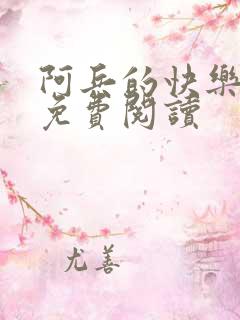 阿岳的快樂
免費閱讀
尤善